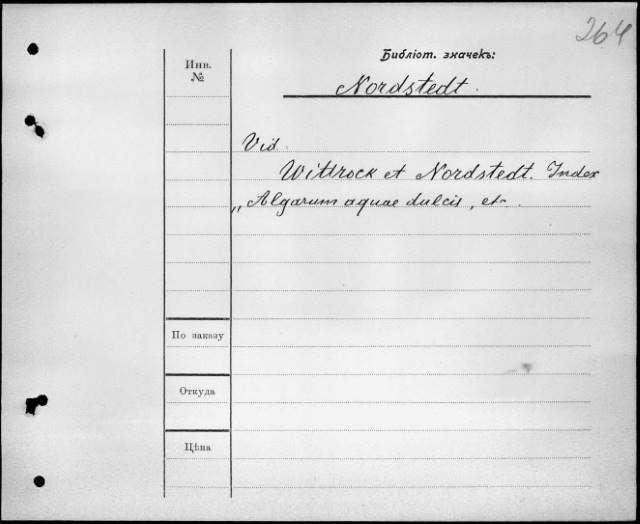 264
Библіот. значекъ:
Инв.
№
Nordstedt.
Vid.
Wittrock et Nordstedt. Index
„Algarum aquae dulcis, etc.
По заказу
Откуда
Цѣна